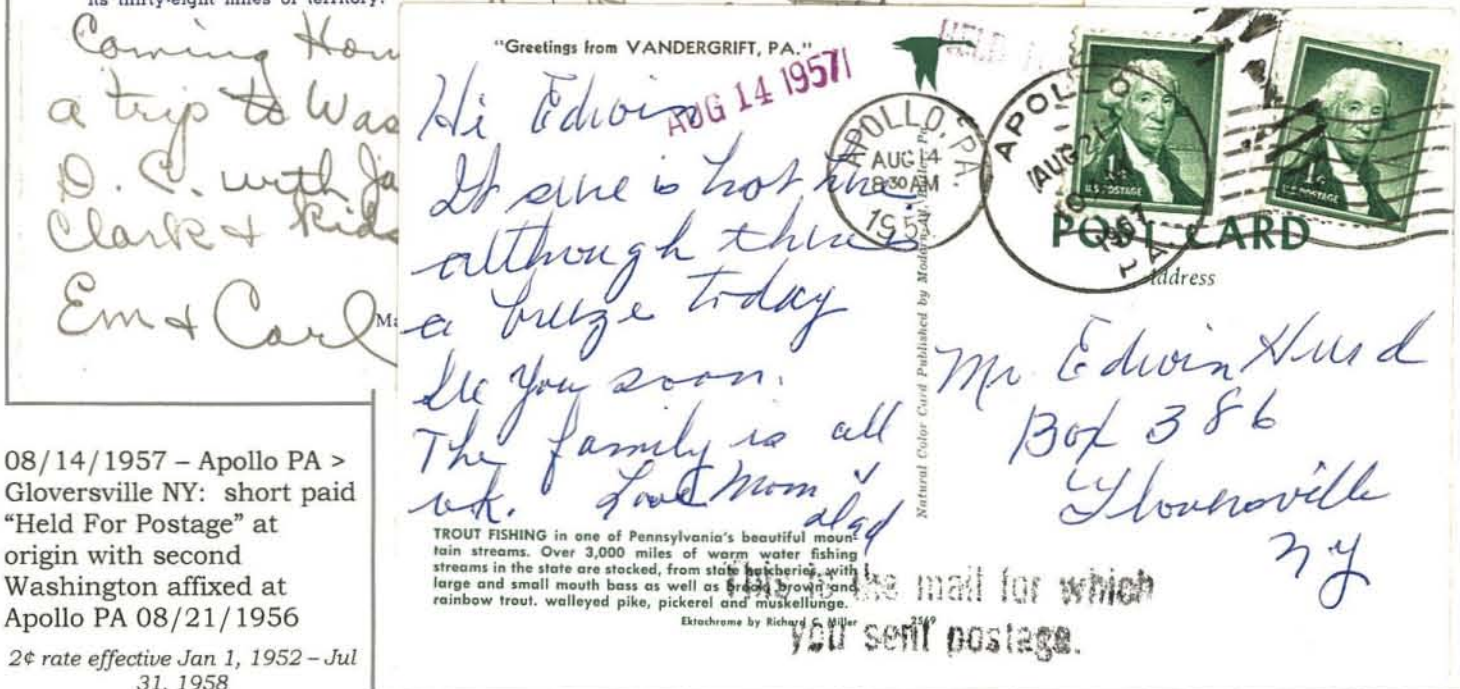 its thirty-eight miles of territory.
Coming Hom
a trip to Was
D. C. with Ja
Clark & kids
Em & Carl
Ma
08/14/1957 – Apollo PA >
Gloversville NY: short paid
“Held For Postage” at
origin with second
Washington affixed at
Apollo PA 08/21/1956
2¢ rate effective Jan 1, 1952 – Jul
31, 1958
"Greetings from VANDERGRIFT, PA."
AUG 14 1957
HELD
Hi Edwin
It sure is hot here
although there is
a breeze today
See you soon.
The family is all
ok. Love Mom &
dad
TROUT FISHING in one of Pennsylvania's beautiful moun-
tain streams. Over 3,000 miles of warm water fishing
streams in the state are stocked, from state hatcheries, with
large and small mouth bass as well as brook, brown and
rainbow trout. walleyed pike, pickerel and muskellunge.
Ektachrome by Richard C. Miller
2569
Natural Color Card Published by Modern
APOLLO, PA.
AUG 14
8 30 AM
1957
APOLLO
AUG 21
1957
PA.
1¢
U.S. POSTAGE
1¢
U.S. POSTAGE
POST CARD
Address
Mr Edwin Hurd
Box 386
Gloversville
NY
This is the mail for which
you sent postage.